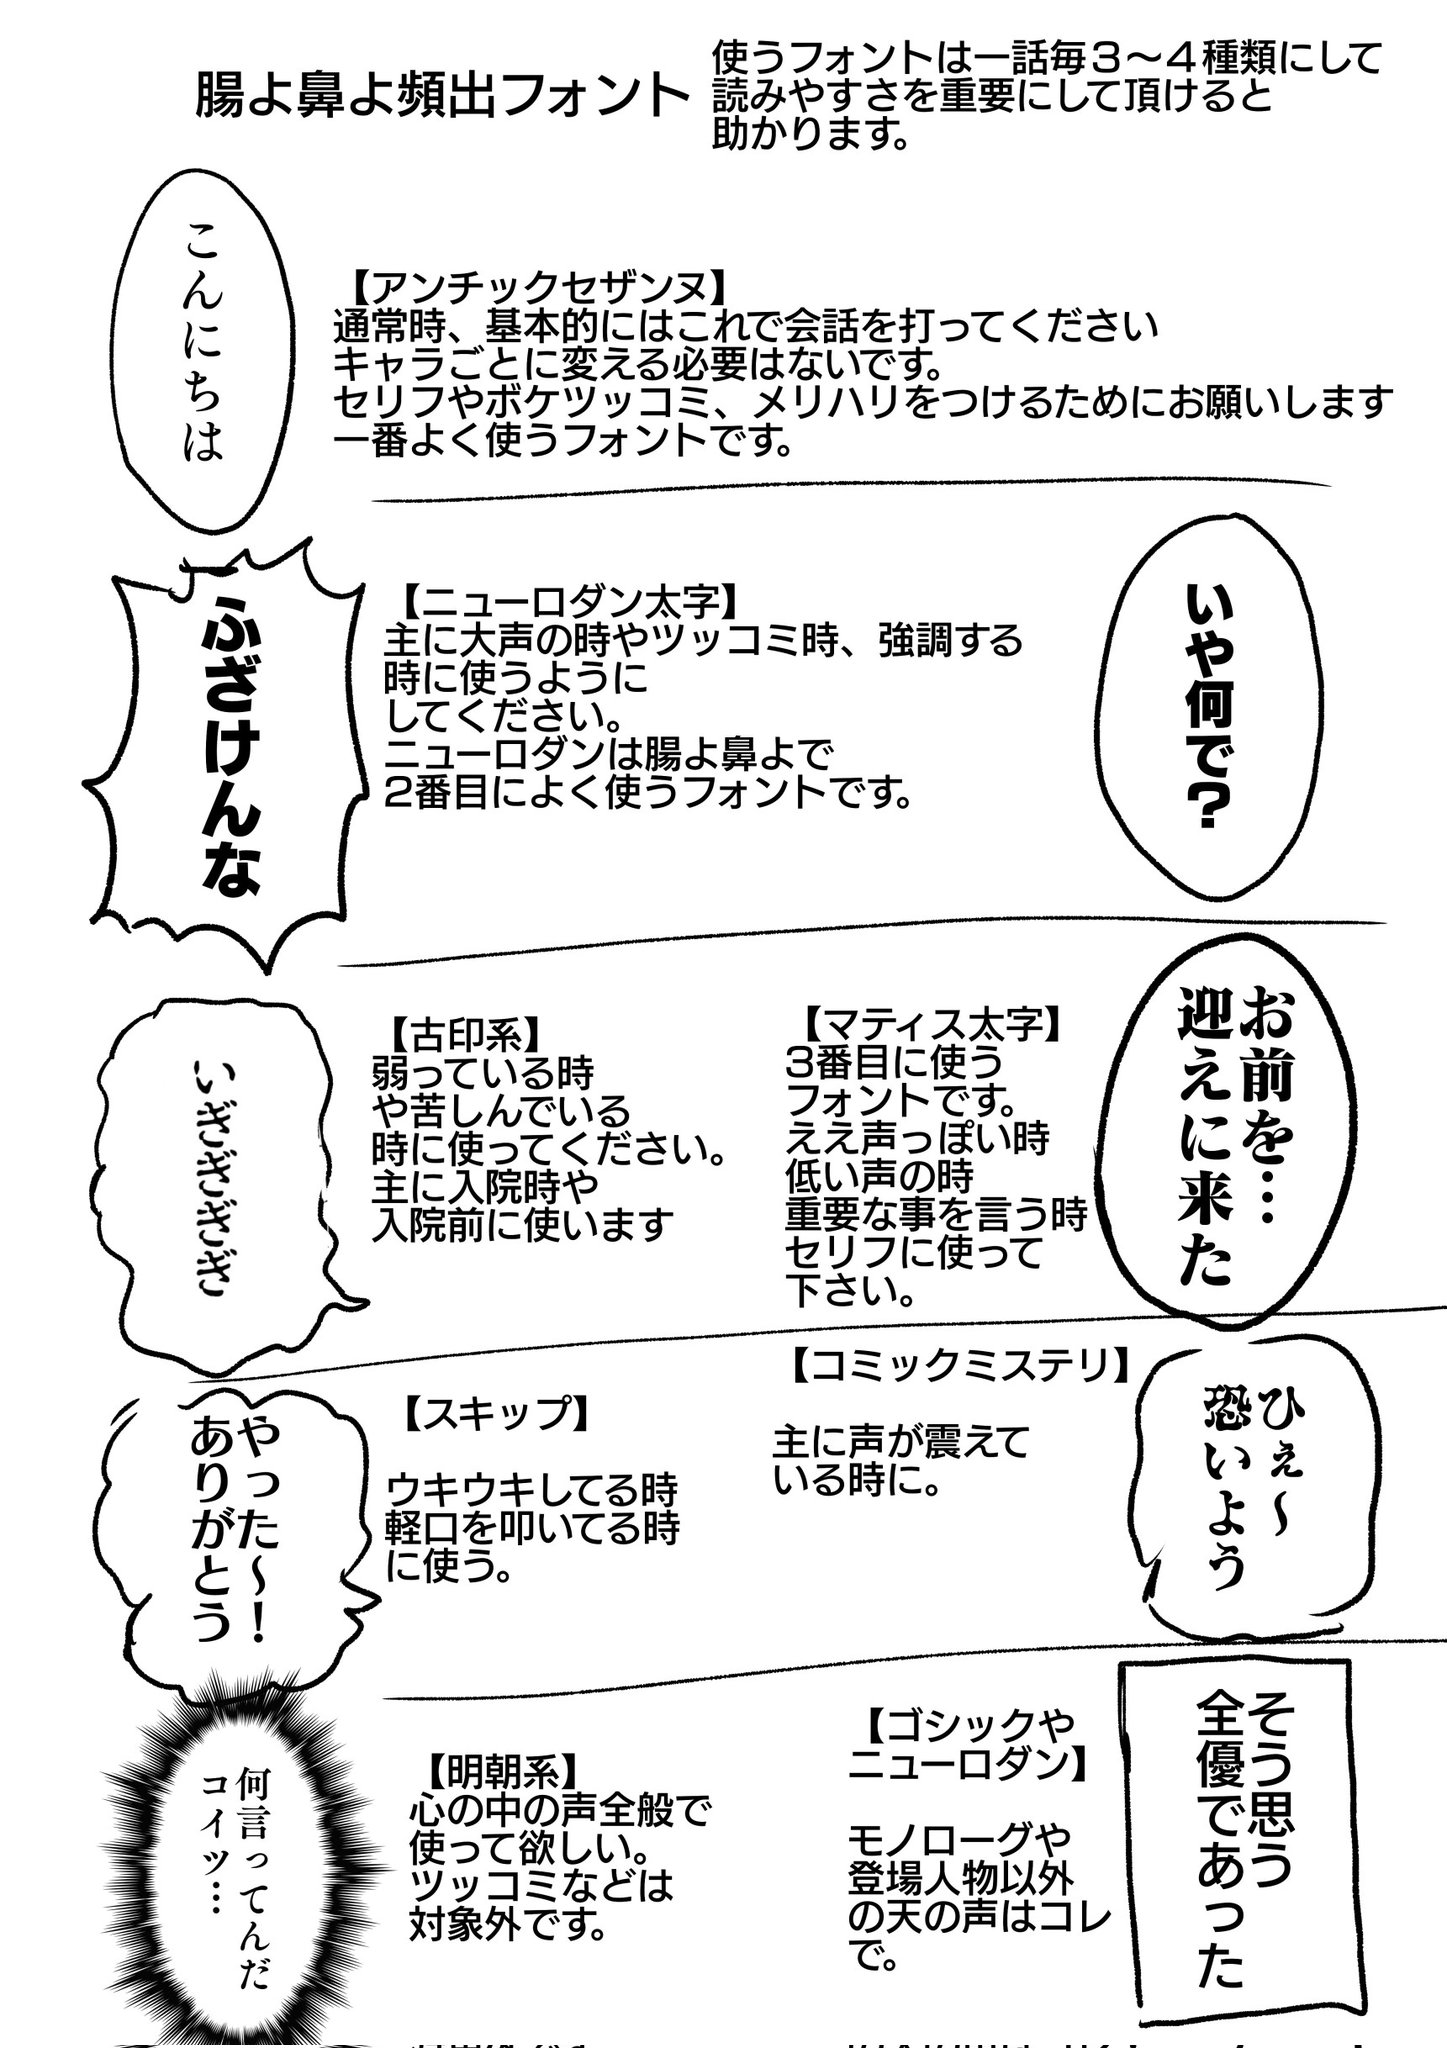 腸よ鼻よ頻出フォント
使うフォントは一話毎３～４種類にして
読みやすさを重要にして頂けると
助かります。
こんにちは
【アンチックセザンヌ】
通常時、基本的にはこれで会話を打ってください
キャラごとに変える必要はないです。
セリフやボケツッコミ、メリハリをつけるためにお願いします
一番よく使うフォントです。
ふざけんな
【ニューロダン太字】
主に大声の時やツッコミ時、強調する
時に使うように
してください。
ニューロダンは腸よ鼻よで
２番目によく使うフォントです。
いや何で？
いぎぎぎぎ
【古印系】
弱っている時
や苦しんでいる
時に使ってください。
主に入院時や
入院前に使います
【マティス太字】
３番目に使う
フォントです。
ええ声っぽい時
低い声の時
重要な事を言う時
セリフに使って
下さい。
お前を…
迎えに来た
やった～！
ありがとう
【スキップ】
ウキウキしてる時
軽口を叩いてる時
に使う。
【コミックミステリ】
主に声が震えて
いる時に。
ひぇ～
恐いよう
何言ってんだ
コイツ…
【明朝系】
心の中の声全般で
使って欲しい。
ツッコミなどは
対象外です。
【ゴシックや
ニューロダン】
モノローグや
登場人物以外
の天の声はコレ
で。
そう思う
全優であった